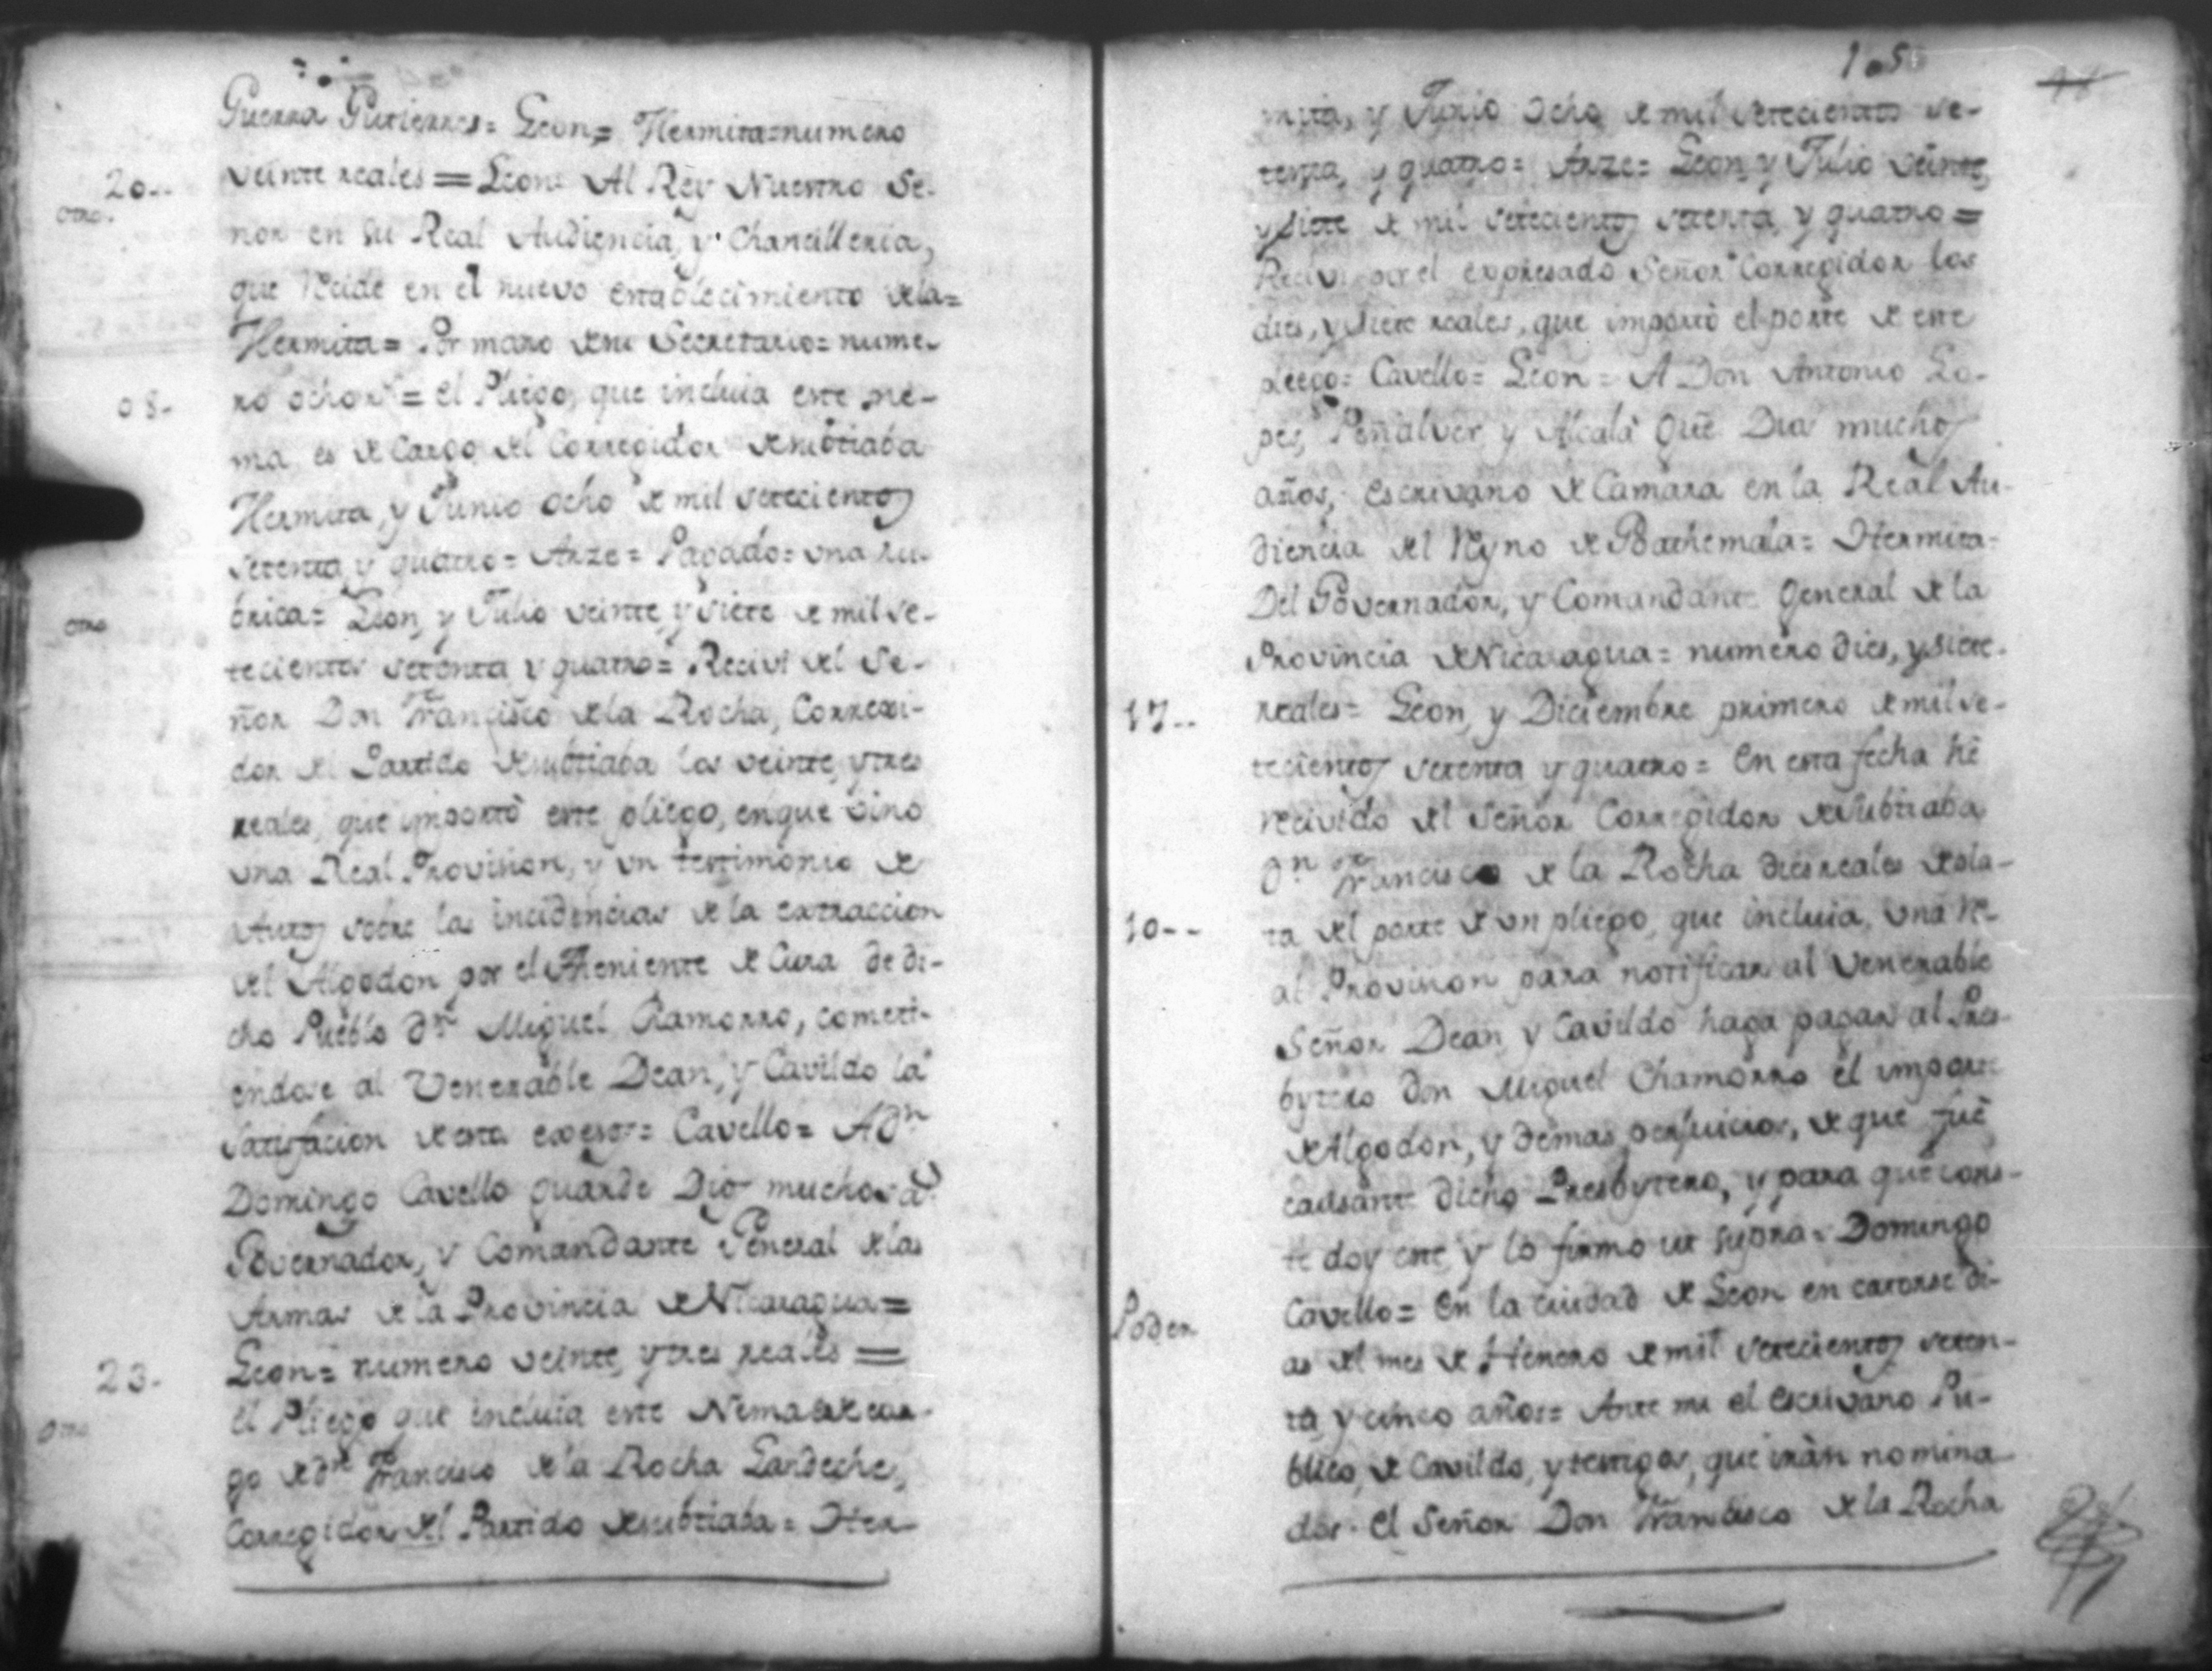 Guerra Gutierres= Leon= Hermita=numero
20..
veinte reales = Leon= Al Rey Nuestro Se-
otro.
ñor en su Real Audiencia, y Chancilleria,
que recide en el nuevo establecimiento dela=
Hermita= Por mano desu Secretario= nume-
08-
ro ocho = el Pliego, que incluia este ne-
ma, es de cargo del Corregidor desubtiaba
Hermita, y Junio ocho de mil setecientos
setenta y quatro= Arze= Pagado= una ru-
otro
brica= Leon, y Julio veinte, y siete de mil se-
tecientos setenta y quatro= Recivi del Se-
ñor Don Francisco dela Rocha, Correxi-
dor del Partido desubtiaba los veinte, y tres
reales, que importò este pliego, enque vino
una Real Provision, y un testimonio de
Autos sobre las incidencias dela extraccion
del Algodon por el Theniente de Cura de di-
cho Pueblo Dn Miguel Chamorro, cometi-
endose al Venerable Dean, y Cavildo la
satisfacion de esta Cavello= A Dn
Domingo Cavello guarde Dios muchos a.
Governador, y Comandante General delas
Armas de la Provincia de Nicaragua=
23-
Leon= numero veinte, y tres reales =
otro
el Pliego que incluia este Nema es de car-
go de Dn Francisco dela Rocha Landeche,
Corregidor del Partido desubtiaba= Her-
105
mita, y Junio ocho de mil setecientos se-
tenta, y quatro= Arze= Leon, y Julio veinte,
y siete de mil setecientos setenta, y quatro=
Recivi por el expresado Señor Corregidor los
dies, y siete reales, que importò el porte de este
pliego= Cavello= Leon= A Don Antonio Lo-
pes, Peñalver, y Alcalà que Dios muchos
años, escrivano de Camara en la Real Au-
diencia del Reyno de Goathemala= Hermita-
Del Governador, y Comandante General de la
Provincia de Nicaragua= numero dies, y siete
17--
reales= Leon, y Diciembre primero de mil se-
tecientos setenta y quatro= En esta fecha hè
recivido del Señor Corregidor de Subtiaba
Dn Francisco de la Rocha dies reales de pla-
10--
ta del porte de un pliego, que incluia, una Re-
al Provision para notificar al Venerable
Señor Dean, y Cavildo haga pagar al Pres-
bytero Don Miguel Chamorro el importe
de Algodon, y demas perjuicios, de que fuè
causante dicho Presbytero, y para que cons-
te doy este y lo firmo ut supra= Domingo
Cavello= En la ciudad de Leon en catorse di-
Poder
as del mes de Henero de mil setecientos seten-
ta, y cinco años= Ante mi el escrivano Pu-
blico, de Cavildo, y testigos, que iràn nomina
dos. El Señor Don Francisco de la Rocha